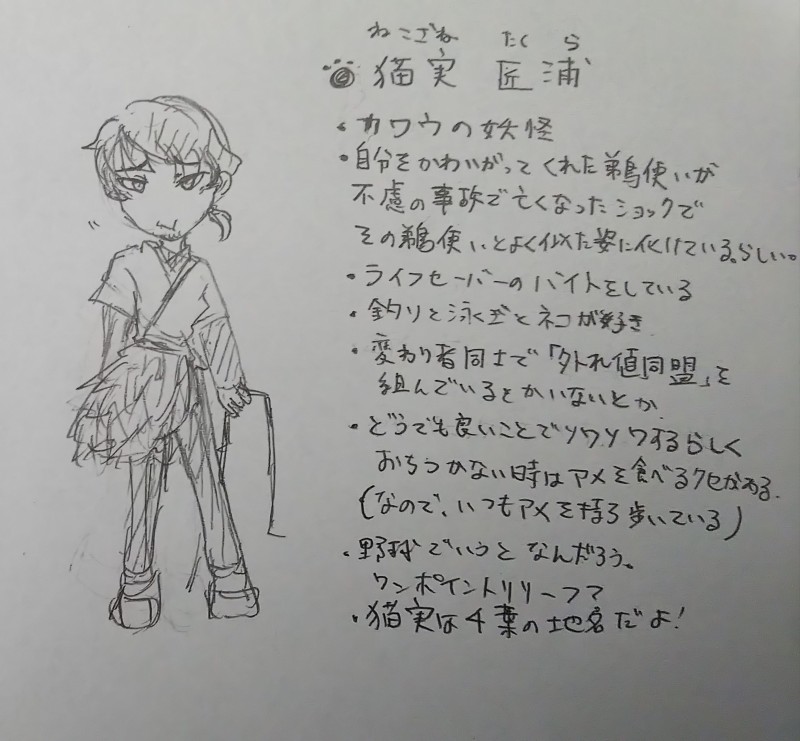 ねこざね たくら
猫実 匠浦
・カワウの妖怪
・自分をかわいがってくれた鵜使いが
不慮の事故で亡くなったショックで
その鵜使いとよく似た姿に化けている。らしい。
・ライフセーバーのバイトをしている
・釣りと泳ぎとネコが好き
・変わり者同士で「外れ値同盟」を
組んでいるとかいないとか
・どうでも良いことでソワソワするらしく
おちつかない時はアメを食べるクセがある。
(なので、いつもアメを持ち歩いている)
・野球でいうとなんだろう。
ワンポイントリリーフ?
・猫実は千葉の地名だよ!